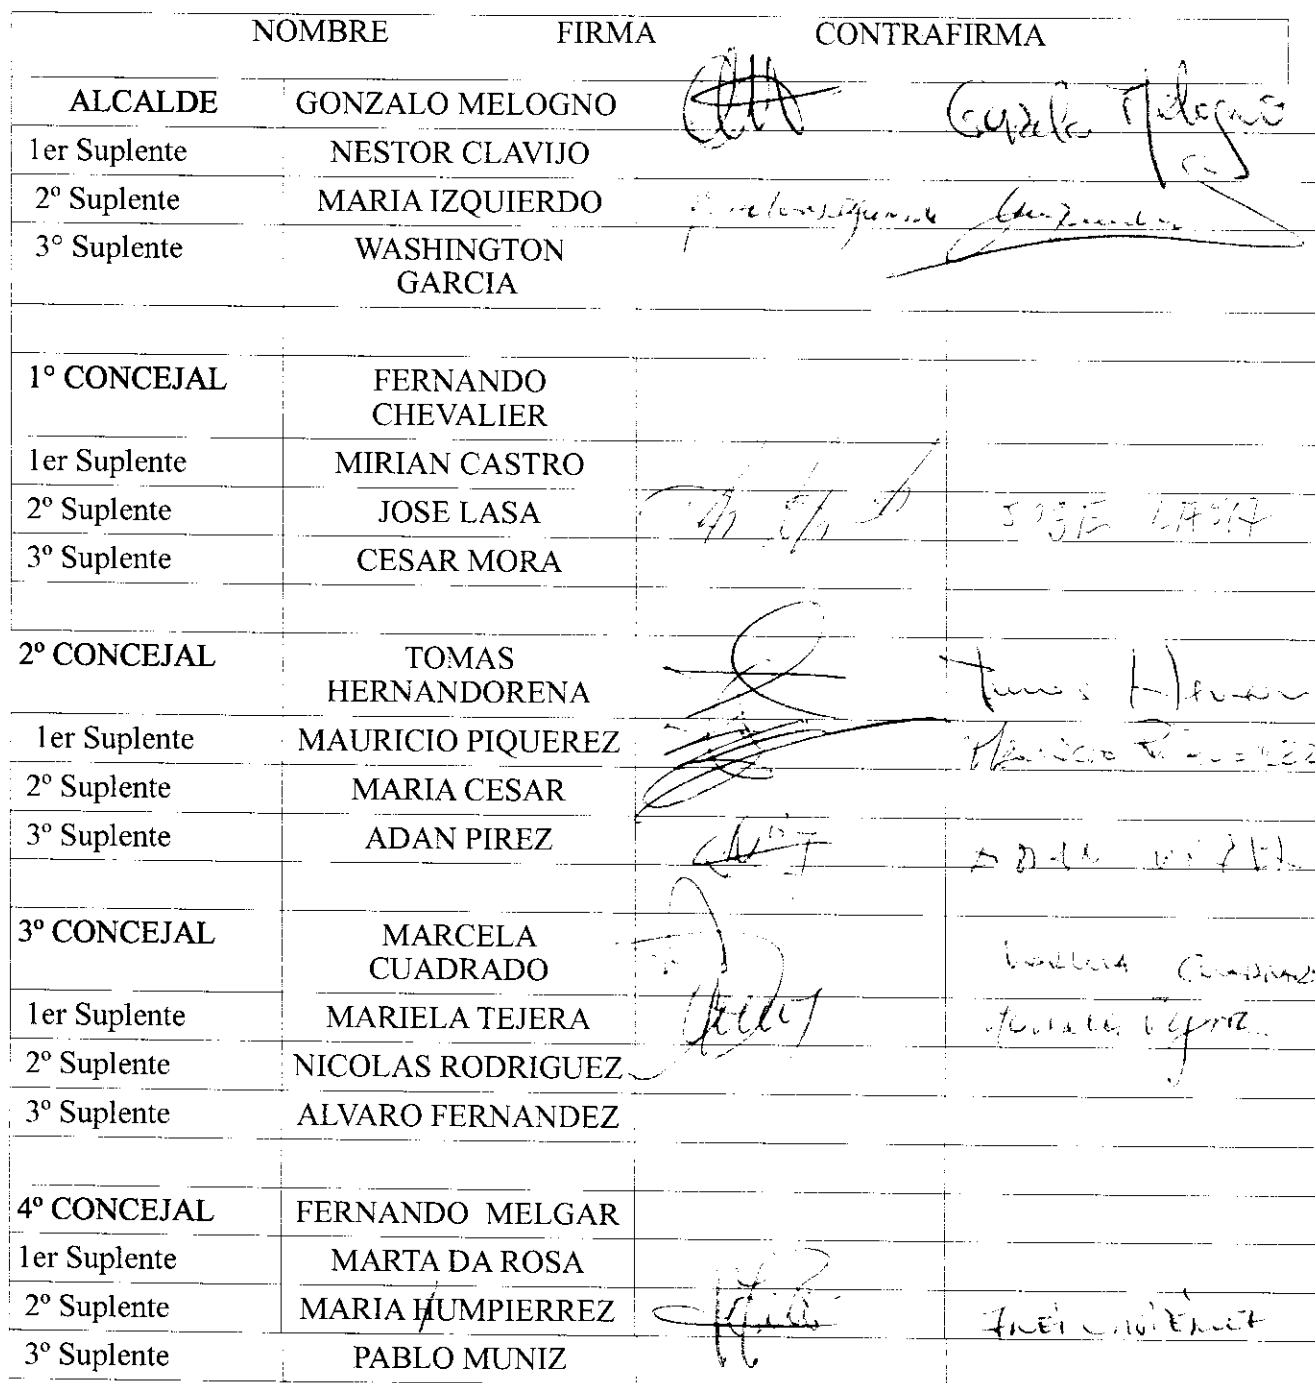 NOMBRE FIRMA CONTRAFIRMA
ALCALDE GONZALO MELOGNO Gonzalo Melogno
1er Suplente NESTOR CLAVIJO
2º Suplente MARIA IZQUIERDO
3° Suplente WASHINGTON
GARCIA
1º CONCEJAL FERNANDO
CHEVALIER
1er Suplente MIRIAN CASTRO
2º Suplente JOSE LASA JOSE LASA
3º Suplente CESAR MORA
2º CONCEJAL TOMAS
HERNANDORENA
1er Suplente MAURICIO PIQUEREZ
2º Suplente MARIA CESAR
3º Suplente ADAN PIREZ
3º CONCEJAL MARCELA
CUADRADO
1er Suplente MARIELA TEJERA
2º Suplente NICOLAS RODRIGUEZ
3º Suplente ALVARO FERNANDEZ
4º CONCEJAL FERNANDO MELGAR
1er Suplente MARTA DA ROSA
2º Suplente MARIA HUMPIERREZ
3º Suplente PABLO MUNIZ